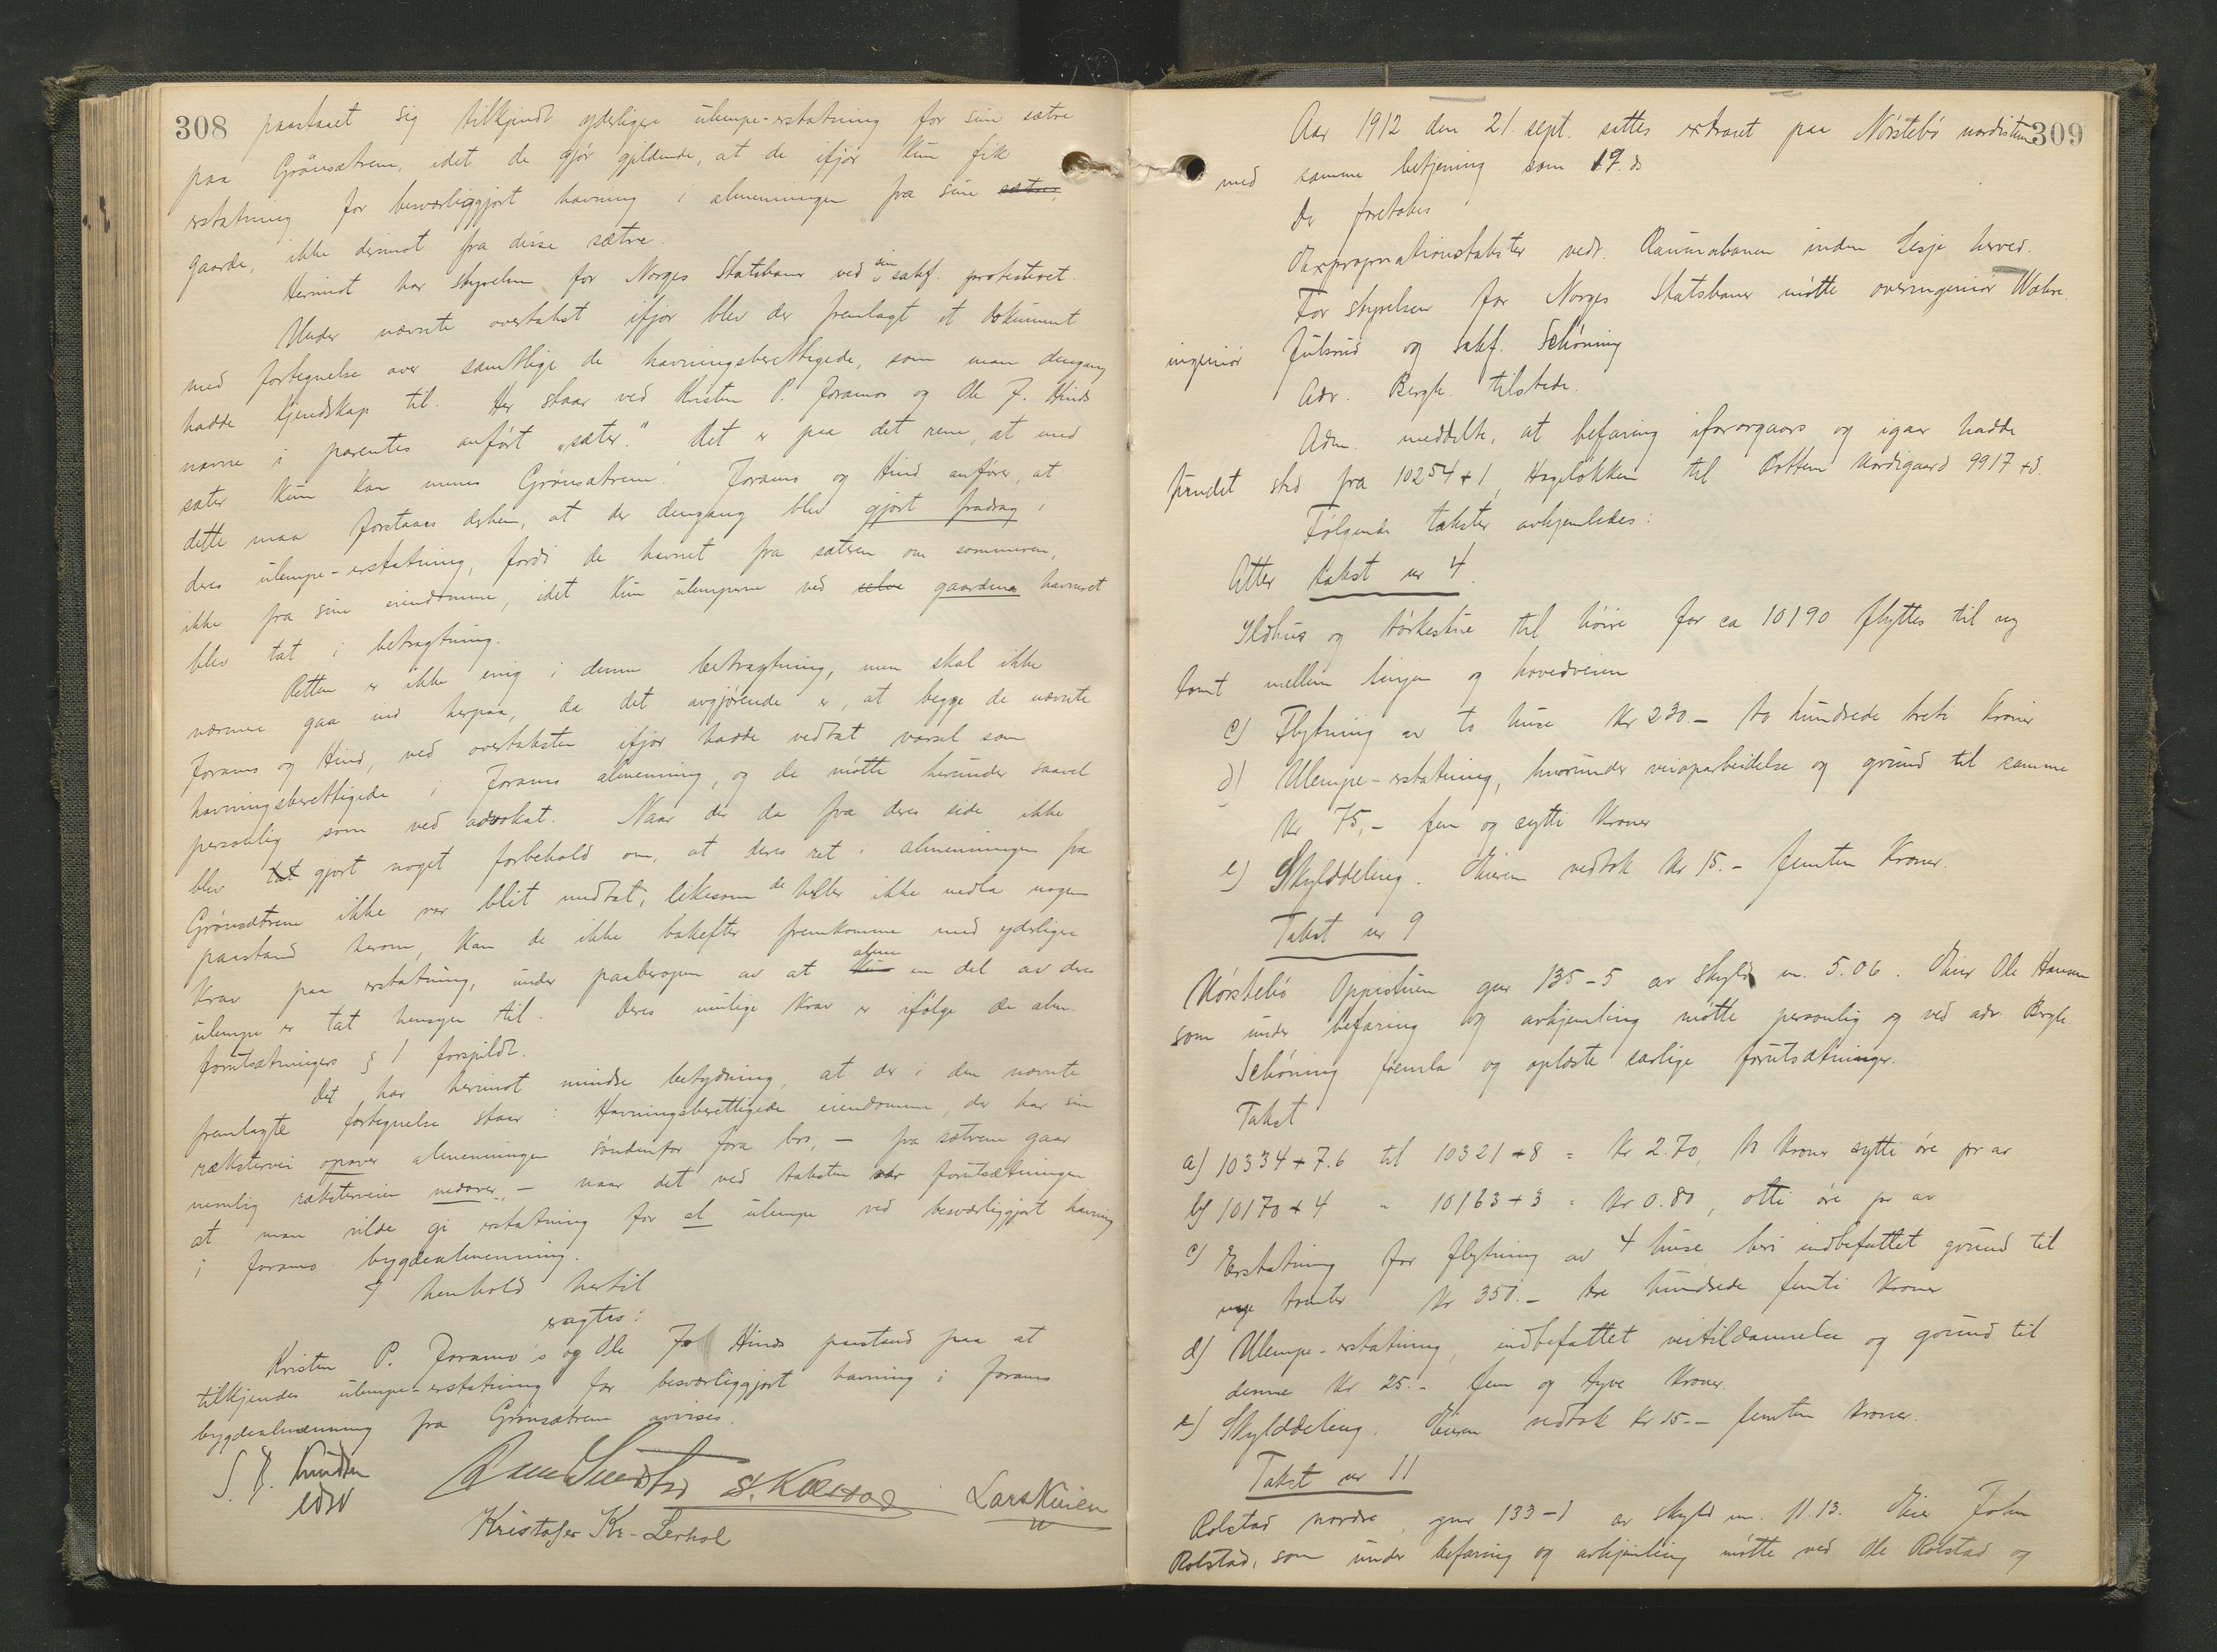 308
paastaaet sig tilkjendt yderligere ulempe-erstatning for sine sætre
paa Grønsætrene, idet de gjør gjeldende, at de ifjor kun fik
erstatning for besværliggjort havning i almenningen fra sine sætre,
gaarde, ikke derimot fra disse sætre.
Herimot har styrelsen for Norges Statsbaner ved sin sakf. protestert.
Under nævnte overtakst ifjor blev der fremlagt et dokument
med fortegnelse over samtlige de havningsberettigede, som man dengang
hadde kjendskap til. Her staar ved Kristen P. Joramos og Ole J. Hinds
navne i parentes anført "sæter." Det er paa det rene, at med
sæter kun kan menes Grønsætrene. Joramo og Hind anfører, at
dette maa forstaaes derhen, at der dengang blev gjort fradrag i
deres ulempe-erstatning, fordi de havnet fra sæteren om sommeren,
ikke fra sine eiendomme, idet kun ulemperne ved selve gaardene havneret
blev tat i betragtning.
Retten er ikke enig i denne betragtning, men skal ikke
nærmere gaa ind herpaa, da det avgjørende er, at begge de nævnte
Joramo og Hind, ved overtaksten ifjor hadde vedtat varsel som
havningsberettigede i Joramo almenning, og de møtte herunder saavel
personlig som ved advokat. Naar der da fra deres side ikke
blev tat gjort noget forbehold om, at deres ret i almenningen fra
Grønsætrene ikke var blit medtat, likesom de heller ikke nedla nogen
paastand herom, kan de ikke bakefter fremkomme med yderligere
krav paa erstatning, under paaberopen av at kun alene en del av deres
ulempe er tat hensyn til. Deres mulige krav er ifølge de alm.
forutsætningers § 1 forspildt.
Det har herimot mindre betydning, at der i den nævnte
fremlagte fortegnelse staar: Havningsberettigede eiendomme, der har sin
rækstervei opover almenningen søndenfor Jora bro, - fra sætrene gaar
nemlig ræksterveien nedover, - naar det ved taksten var forutsætningen
at man vilde gi erstatning for al ulempe ved besværliggjort havning
i Joramo bygdealmenning.
I henhold hertil
eragtes:
Kristen P. Joramo's og Ole J. Hinds paastand paa at
tilkjendes ulempe-erstatning for besværliggjort havning i Joramo
bygdealmenning fra Grønsætrene avvises.
Lars Kirien
Kristofer Kr. Lerhol
309
Aar 1912 den 21. sept. sattes extraret paa Nørstebø nordistuen
med samme betjening som 19. ds
Der foretokes
Expropriationstakster vedr. Raumabanen inden Lesje herred.
For styrelsen for Norges Statsbaner møtte overingeniør Wahre,
ingeniør Julsrud og sakf. Schøning
Adv. Bergh tilstede.
Adm. meddelte, at befaring iforgaars og igaar hadde
fundet sted fra 10254+1, Hageløkken til Botten Nordigaard 9917 +5.
Følgende takster avhjemledes:
Atter takst nr 4.
Ildhus og tørkestue til høire for ca 10190 flyttes til ny
tomt mellem linjen og hovedveien
c) Flytning av to huse Kr 230.- to hundrede treti kroner
d) Ulempe-erstatning, hvorunder veioparbeidelse og grund til samme
Kr 75,- fem og sytti kroner
e) Skylddeling. Eieren vedtok Kr 15.- femten kroner.
Takst nr 9
Nørstebø Oppistuen gnr 135-5 av skyld m. 5.06. Eier Ole Hansen
som under befaring og avhjemling møtte personlig og ved adv. Bergh
Schøning fremla og oplæste særlige forutsætninger.
Takst
a) 10334+7.6 til 10321+8 = Kr 2.70, to kroner sytti øre pr ar
b) 10170+4 " 10163+3 = Kr 0.80, otti øre pr ar
c) Erstatning for flytning av 4 huse heri indbefattet grund til
nye tomter Kr 350.- tre hundrede femti kroner
d) Ulempe-erstatning, indbefattet veitildannelse og grund til
denne Kr 25.- fem og tyve kroner.
e) Skylddeling. Eieren vedtok Kr 15.- femten kroner.
Takst nr 11
Rolstad nordre, gnr 133-1 av skyld m. 11.13. Eier John
Rolstad, som under befaring og avhjemling møtte ved Ole Rolstad og